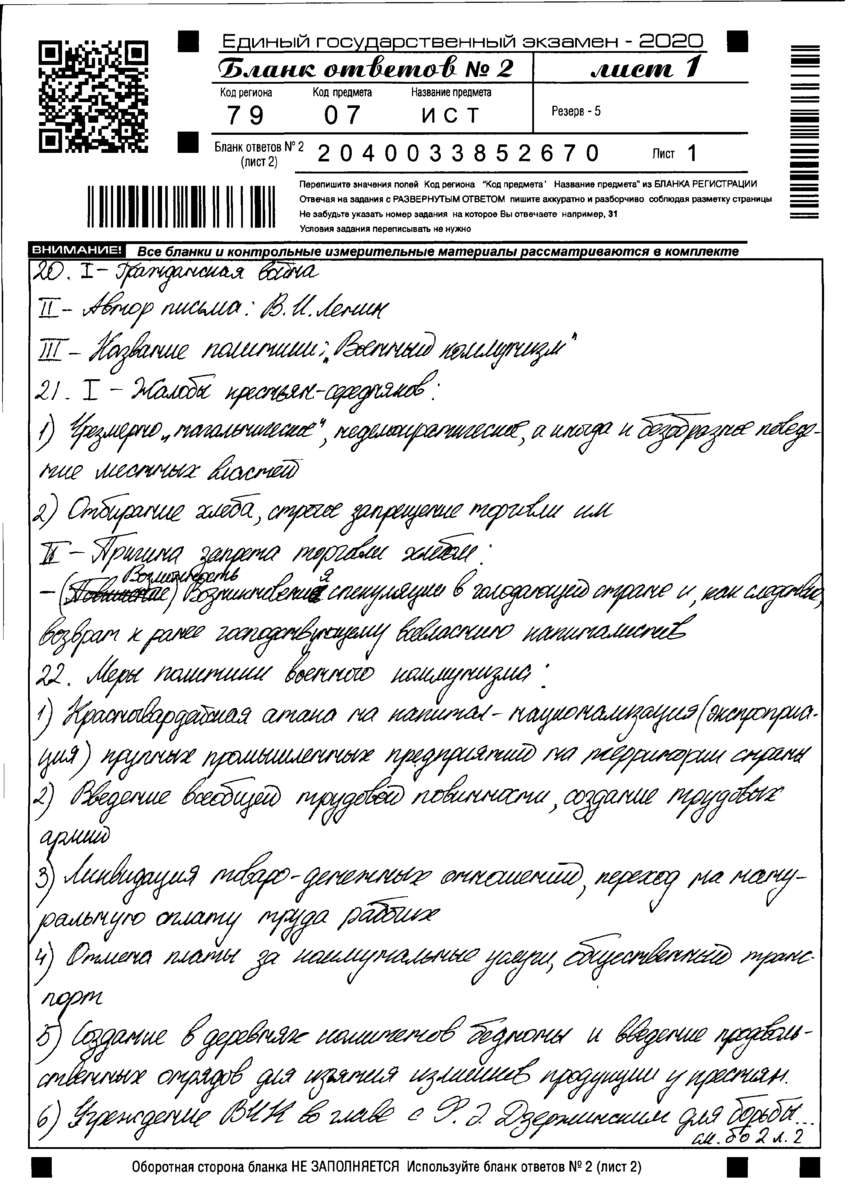 Единый государственный экзамен - 2020
Бланк ответов № 2 лист 1
Код региона Код предмета Название предмета
79 07 ИСТ Резерв - 5
Бланк ответов № 2 (лист 2) 2040033852670 Лист 1
Перепишите значения полей Код региона "Код предмета" Название предмета" из БЛАНКА РЕГИСТРАЦИИ
Отвечая на задания с РАЗВЕРНУТЫМ ОТВЕТОМ пишите аккуратно и разборчиво соблюдая разметку страницы
Не забудьте указать номер задания на которое Вы отвечаете например, 31
Условия задания переписывать не нужно
ВНИМАНИЕ! Все бланки и контрольные измерительные материалы рассматриваются в комплекте
20. I – Гражданская война
II – Автор письма: В.И. Ленин
III – Название политики: „Военный коммунизм"
21. I – Жалобы крестьян-середняков:
1) Чрезмерно „начальническое", недемократическое, а иногда и безобразное поведе-
ние местных властей
2) Отбирание хлеба, строгое запрещение торговли им
II – Причина запрета торговли хлебом:
Возможность
– Возникновения спекуляции в голодающей стране и, как следствие,
возврат к ранее господствующему всевластию капиталистов
22. Меры политики военного коммунизма:
1) Красногвардейская атака на капитал – национализация (экспроприа-
ция) крупных промышленных предприятий на территории страны
2) Введение всеобщей трудовой повинности, создание трудовых
армий
3) Ликвидация товаро-денежных отношений, переход на нату-
ральную оплату труда рабочих
4) Отмена платы за коммунальные услуги, общественный транс-
порт
5) Создание в деревнях комитетов бедноты и введение продоволь-
ственных отрядов для изъятия излишков продукции у крестьян.
6) Учреждение ВЧК во главе с Ф. Э. Дзержинским для борьбы...
см. бо 2 л. 2
Оборотная сторона бланка НЕ ЗАПОЛНЯЕТСЯ Используйте бланк ответов № 2 (лист 2)